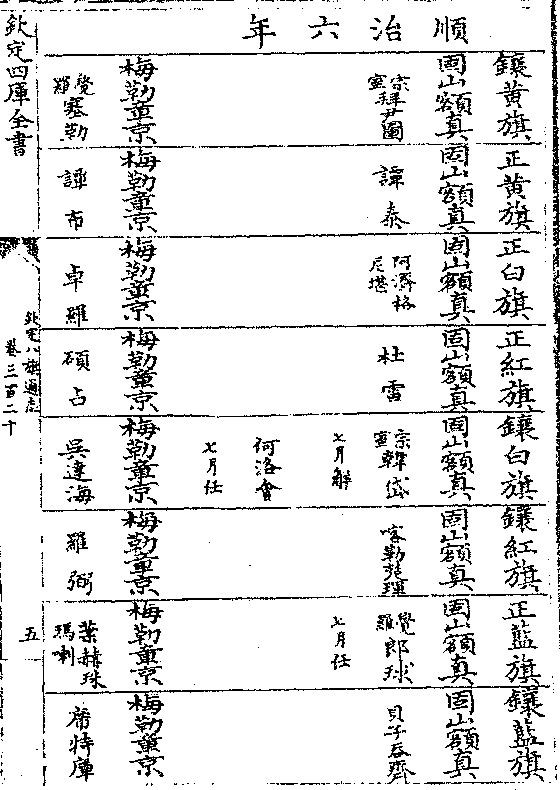 順治六年
鑲黃旗
固山額真
宗室拜尹圖
梅勒章京
覺羅塞勒
正黃旗
固山額真
譚泰
梅勒章京
譚布
正白旗
固山額真
阿濟格尼堪
梅勒章京
卓羅
正紅旗
固山額真
杜雷
梅勒章京
碩占
鑲白旗
固山額真
宗室韓岱
七月解
何洛會
七月任
梅勒章京
吳達海
鑲紅旗
固山額真
梅勒章京
羅弼
正藍旗
固山額真
覺羅郎球
七月任
梅勒章京
葉赫珠瑪喇
鑲藍旗
固山額真
貝子吞齊
梅勒章京
席特庫
欽定四庫全書
欽定八旗通志
卷三百二十
五